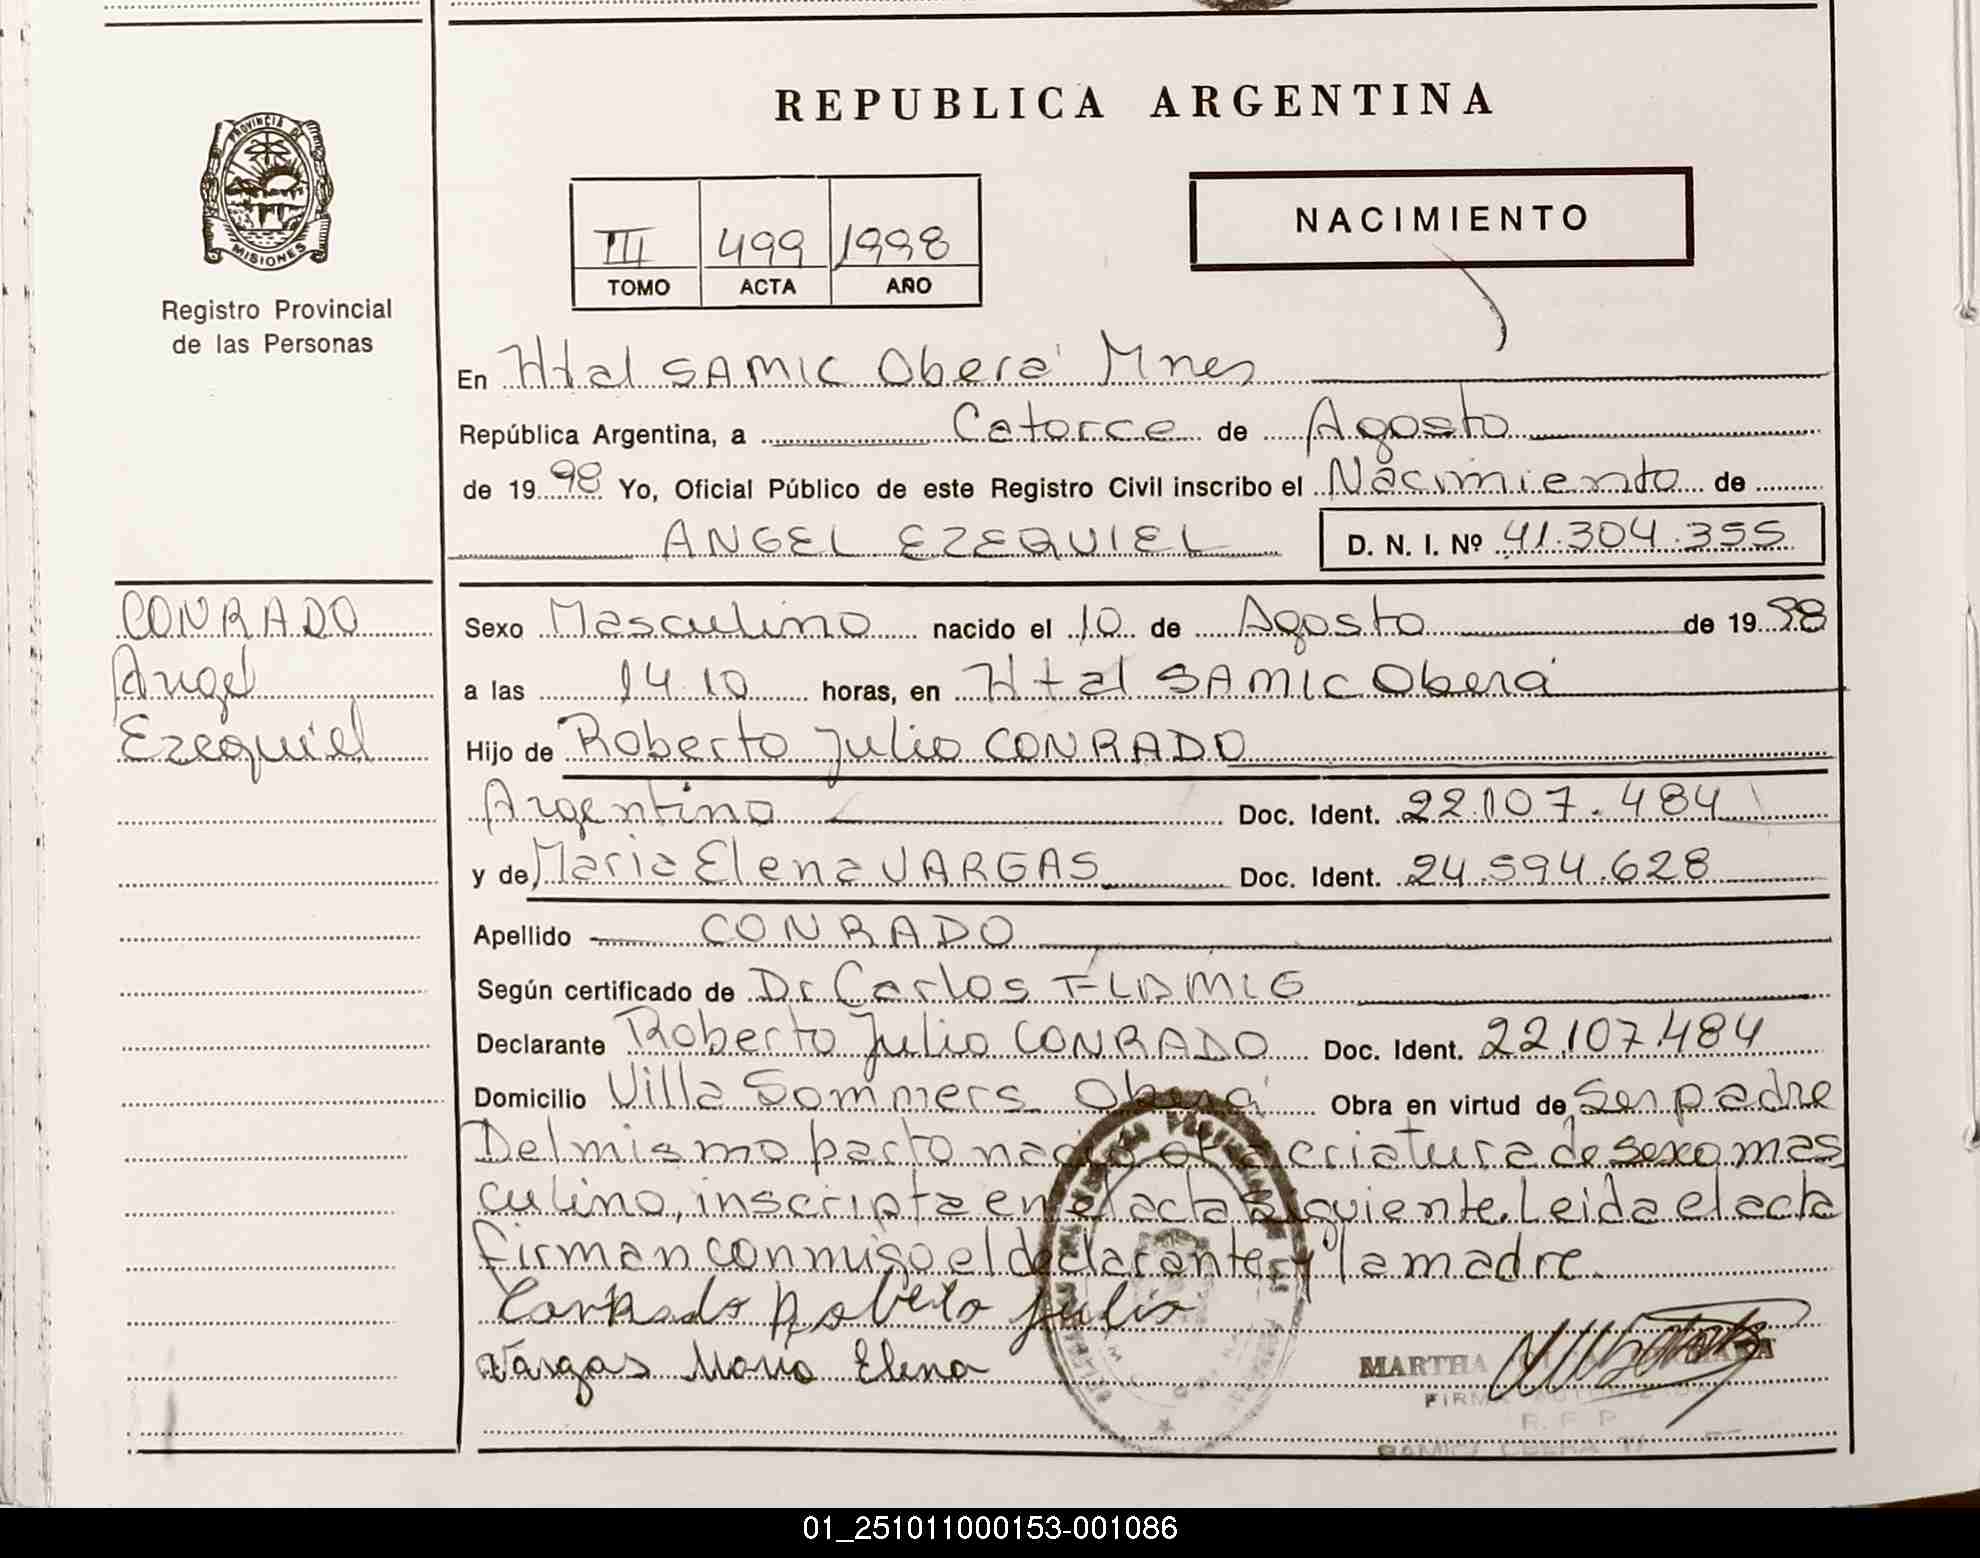 REPUBLICA ARGENTINA
PROVINCIA DE
MISIONES
Registro Provincial
de las Personas
III 499 1998
TOMO ACTA AÑO
NACIMIENTO
En Htal SAMIC Oberá Mnes
República Argentina, a Catorce de Agosto
de 1998 Yo, Oficial Público de este Registro Civil inscribo el Nacimiento de
ANGEL EZEQUIEL D. N. I. Nº 41.304.355
CONRADO
Angel
Ezequiel
Sexo Masculino nacido el 10 de Agosto de 1998
a las 14 10 horas, en Htal SAMIC Oberá
Hijo de Roberto Julio CONRADO
Argentino Doc. Ident. 22.107.484
y de Maria Elena VARGAS Doc. Ident. 24.594.628
Apellido CONRADO
Según certificado de Dr Carlos FLAMIG
Declarante Roberto Julio CONRADO Doc. Ident. 22.107.484
Domicilio Villa Sommers Oberá Obra en virtud de Ser padre
Del mismo parto nació otra criatura de sexo mas
culino, inscripta en el acta siguiente. Leida el acta
firman conmigo el declarante y la madre.
Conrado Roberto Julio
Vargas Maria Elena
MARTHA
R. P. P.
01_251011000153-001086